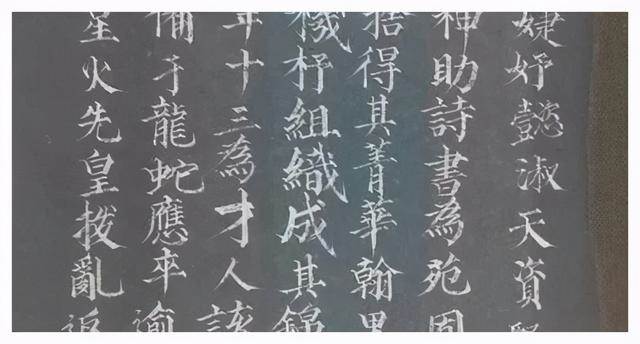 婕妤懿淑天資
神助詩書為苑
捨得其菁華翰
機杼組織成其錦
年十三為才人該
備于龍蛇應卒逾
星火先皇撥亂返